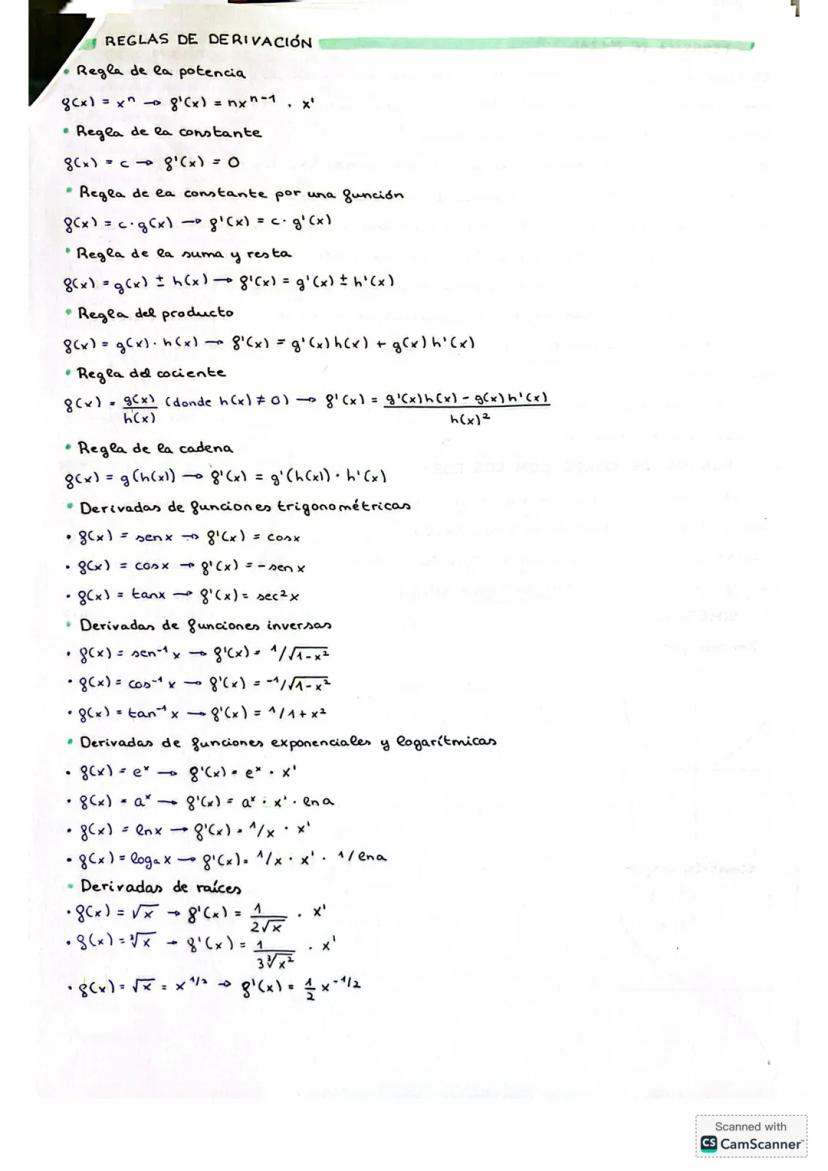 REGLAS DE DERIVACIÓN
• Regla de la potencia
f(x) = xⁿ → f'(x) = nxⁿ⁻¹ . x'
• Regla de la constante
f(x) = c → f'(x) = 0
• Regla de la constante por una función
f(x) = c · g(x) → f'(x) = c · g'(x)
• Regla de la suma y resta
f(x) = g(x) ± h(x) → f'(x) = g'(x) ± h'(x)
• Regla del producto
f(x) = g(x) · h(x) → f'(x) = g'(x)h(x) + g(x)h'(x)
• Regla del cociente
f(x) = g(x)/h(x) (donde h(x) ≠ 0) → f'(x) = g'(x)h(x) - g(x)h'(x) / h(x)²
• Regla de la cadena
f(x) = g(h(x)) → f'(x) = g'(h(x)) · h'(x)
• Derivadas de funciones trigonométricas
• f(x) = senx → f'(x) = cosx
• f(x) = cosx → f'(x) = -senx
• f(x) = tanx → f'(x) = sec²x
• Derivadas de funciones inversas
• f(x) = sen⁻¹x → f'(x) = 1/√1-x²
• f(x) = cos⁻¹x → f'(x) = -1/√1-x²
• f(x) = tan⁻¹x → f'(x) = 1/1+x²
• Derivadas de funciones exponenciales y logarítmicas
• f(x) = eˣ → f'(x) = eˣ · x'
• f(x) = aˣ → f'(x) = aˣ · x' · lna
• f(x) = lnx → f'(x) = 1/x · x'
• f(x) = logₐx → f'(x) = 1/x · x' · 1/lna
• Derivadas de raíces
• f(x) = √x → f'(x) = 1/2√x . x'
• f(x) = ³√x → f'(x) = 1/3³√x² . x'
• f(x) = √x = x^1/2 → f'(x) = 1/2 x^-1/2
Scanned with
CS CamScanner